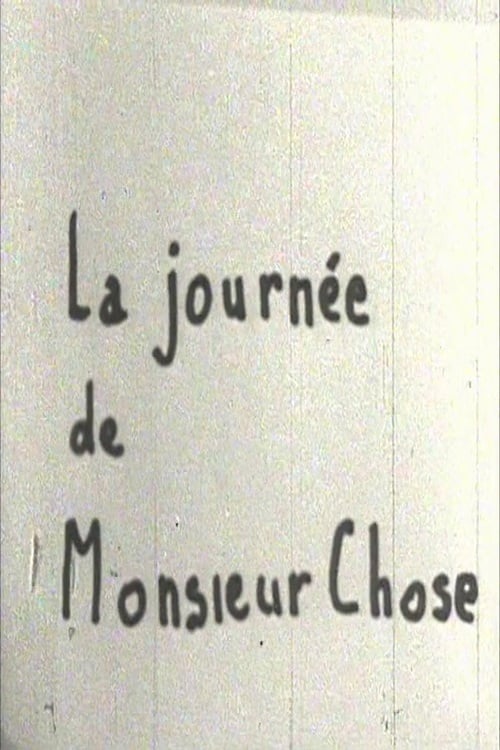 La journée
de
Monsieur Chose